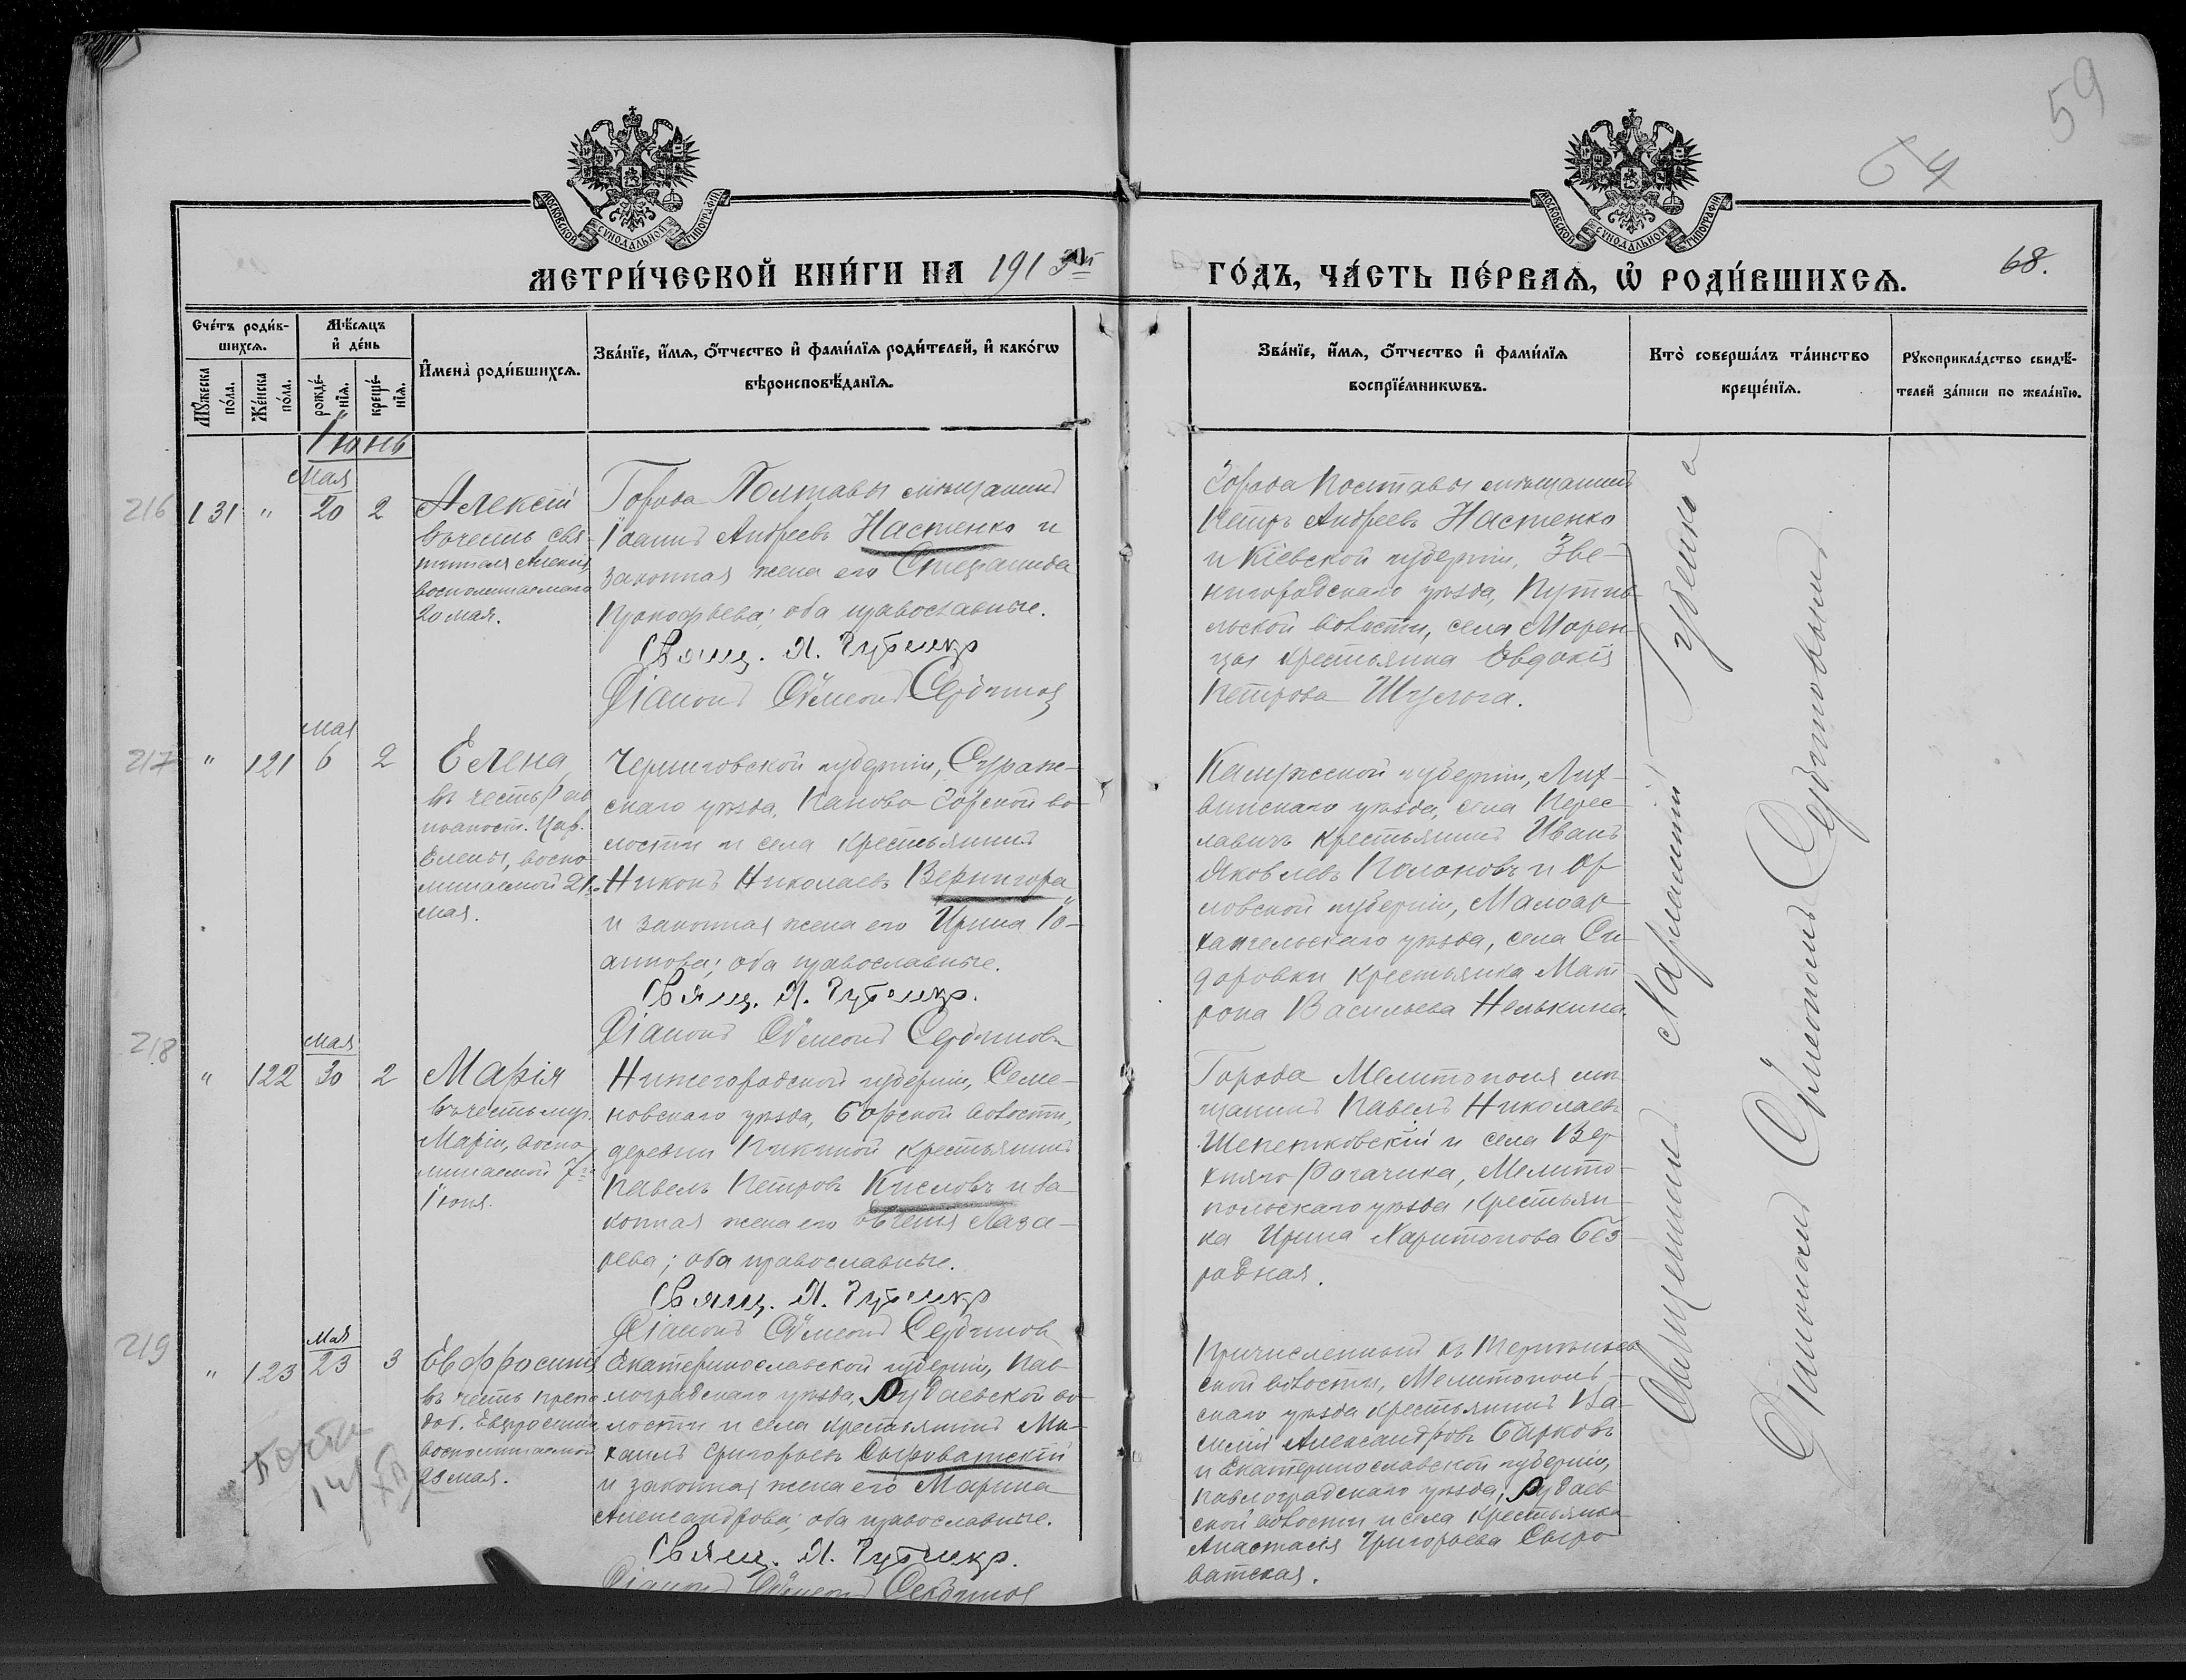 59
64
МОСКОВСКОЙ СѴНОДАЛЬНОЙ ТИПОГРАФІИ
МОСКОВСКОЙ СѴНОДАЛЬНОЙ ТИПОГРАФІИ
МЕТРИ́ЧЕСКОЙ КНИ́ГИ НА 1913
ГО́ДЪ, ЧА́СТЬ ПЕ́РВАѦ, Ѡ҆ РОДИ́ВШИХСѦ.
68.
Сче́тъ роди́в-
шихсѧ.
Мѣ́сѧцъ
и҆ де́нь
Мꙋ́жеска
по́ла.
Же́нска
по́ла.
рожде́-
нїѧ.
креще́-
нїѧ.
И҆мена̀ роди́вшихсѧ.
Зва́нїе, и҆́мѧ, ѻ҆́тчество и҆ фами́лїѧ роди́телей, и҆ како́гѡ
вѣроисповѣ́данїѧ.
Зва́нїе, и҆́мѧ, ѻ҆́тчество и҆ фами́лїѧ
воспрїе́мникѡвъ.
Кто̀ соверша́лъ та́инство
креще́нїѧ.
Рꙋкоприкла́дство свидѣ́-
телей за́писи по жела́нїю.
Іюнь
216
131
"
Мая
20
2
Алексій
въ честь свя-
тителя Алексія,
воспоминаемаго
20 мая.
Города Полтавы мѣщанинъ
Іоаннъ Андреевъ Настенко и
законная жена его Стефанида
Прокофьева; оба православные.
Свящ. Х. Губенко
Діаконъ Сѵмеонъ Сербиновъ
Города Полтавы мѣщанинъ
Петръ Андреевъ Настенко
и Кіевской губерніи, Зве-
нигородскаго уѣзда,
льской волости, села Морен-
цы крестьянка Евдокія
Петрова
217
"
121
мая
6
2
Елена,
въ честь рав-
ноапост. Цар.
Елены, воспо-
минаемой 21
мая.
Черниговской губерніи, Сураж-
скаго уѣзда, Попово Горской во-
лости и села крестьянинъ
Никонъ Николаевъ Вернигора
и законная жена его Ирина Іо-
аннова; оба православные.
Свящ. Х. Губенко.
Діаконъ Сѵмеонъ Сербиновъ
Калужской губерніи, Лих-
винскаго уѣзда, села Перес-
лавичъ крестьянинъ Иванъ
Яковлевъ и Ор-
ловской губерніи, Малоар-
хангельскаго уѣзда, села Си-
доровки крестьянка Мат-
рона Васильева Нелькина.
218
"
122
мая
30
2
Марія
въ честь муч.
Маріи, воспо-
минаемой 7го
Іюня.
Нижегородской губерніи, Семе-
новскаго уѣзда, Борской волости,
деревни Пикиной крестьянинъ
Павелъ Петровъ Кисловъ и за-
конная жена его Евгенія Лаза-
рева; оба православные.
Свящ. Х. Губенко
Діаконъ Сѵмеонъ Сербиновъ
Города Мелитополя мѣ-
щанинъ Павелъ Николаевъ
и села Вер-
хняго Рогачика, Мелито-
польскаго уѣзда крестьян-
ка Ирина Харитонова Без-
родная.
219
"
123
мая
23
3
Евфросинія
въ честь препо-
доб. Евфросиніи,
воспоминаемой
23 мая.
Екатеринославской губерніи, Пав-
лоградскаго уѣзда, Рудаевской во-
лости и села крестьянинъ Ми-
хаилъ Григорьевъ Сыроватскій
и законная жена его Марина
Александрова; оба православные.
Свящ. Х. Губенко.
Діаконъ Сѵмеонъ Сербиновъ
Причисленный къ Терпѣньев-
ской волости, Мелитополь-
скаго уѣзда крестьянинъ Ва-
силій Александровъ Барковъ
и Екатеринославской губерніи,
Павлоградскаго уѣзда, Рудаев-
ской волости и села крестьянка
Анастасія Григорьева Сыро-
ватская.
Священникъ Харлампій Губенко с
Діакономъ Сѵмеономъ Сербиновымъ